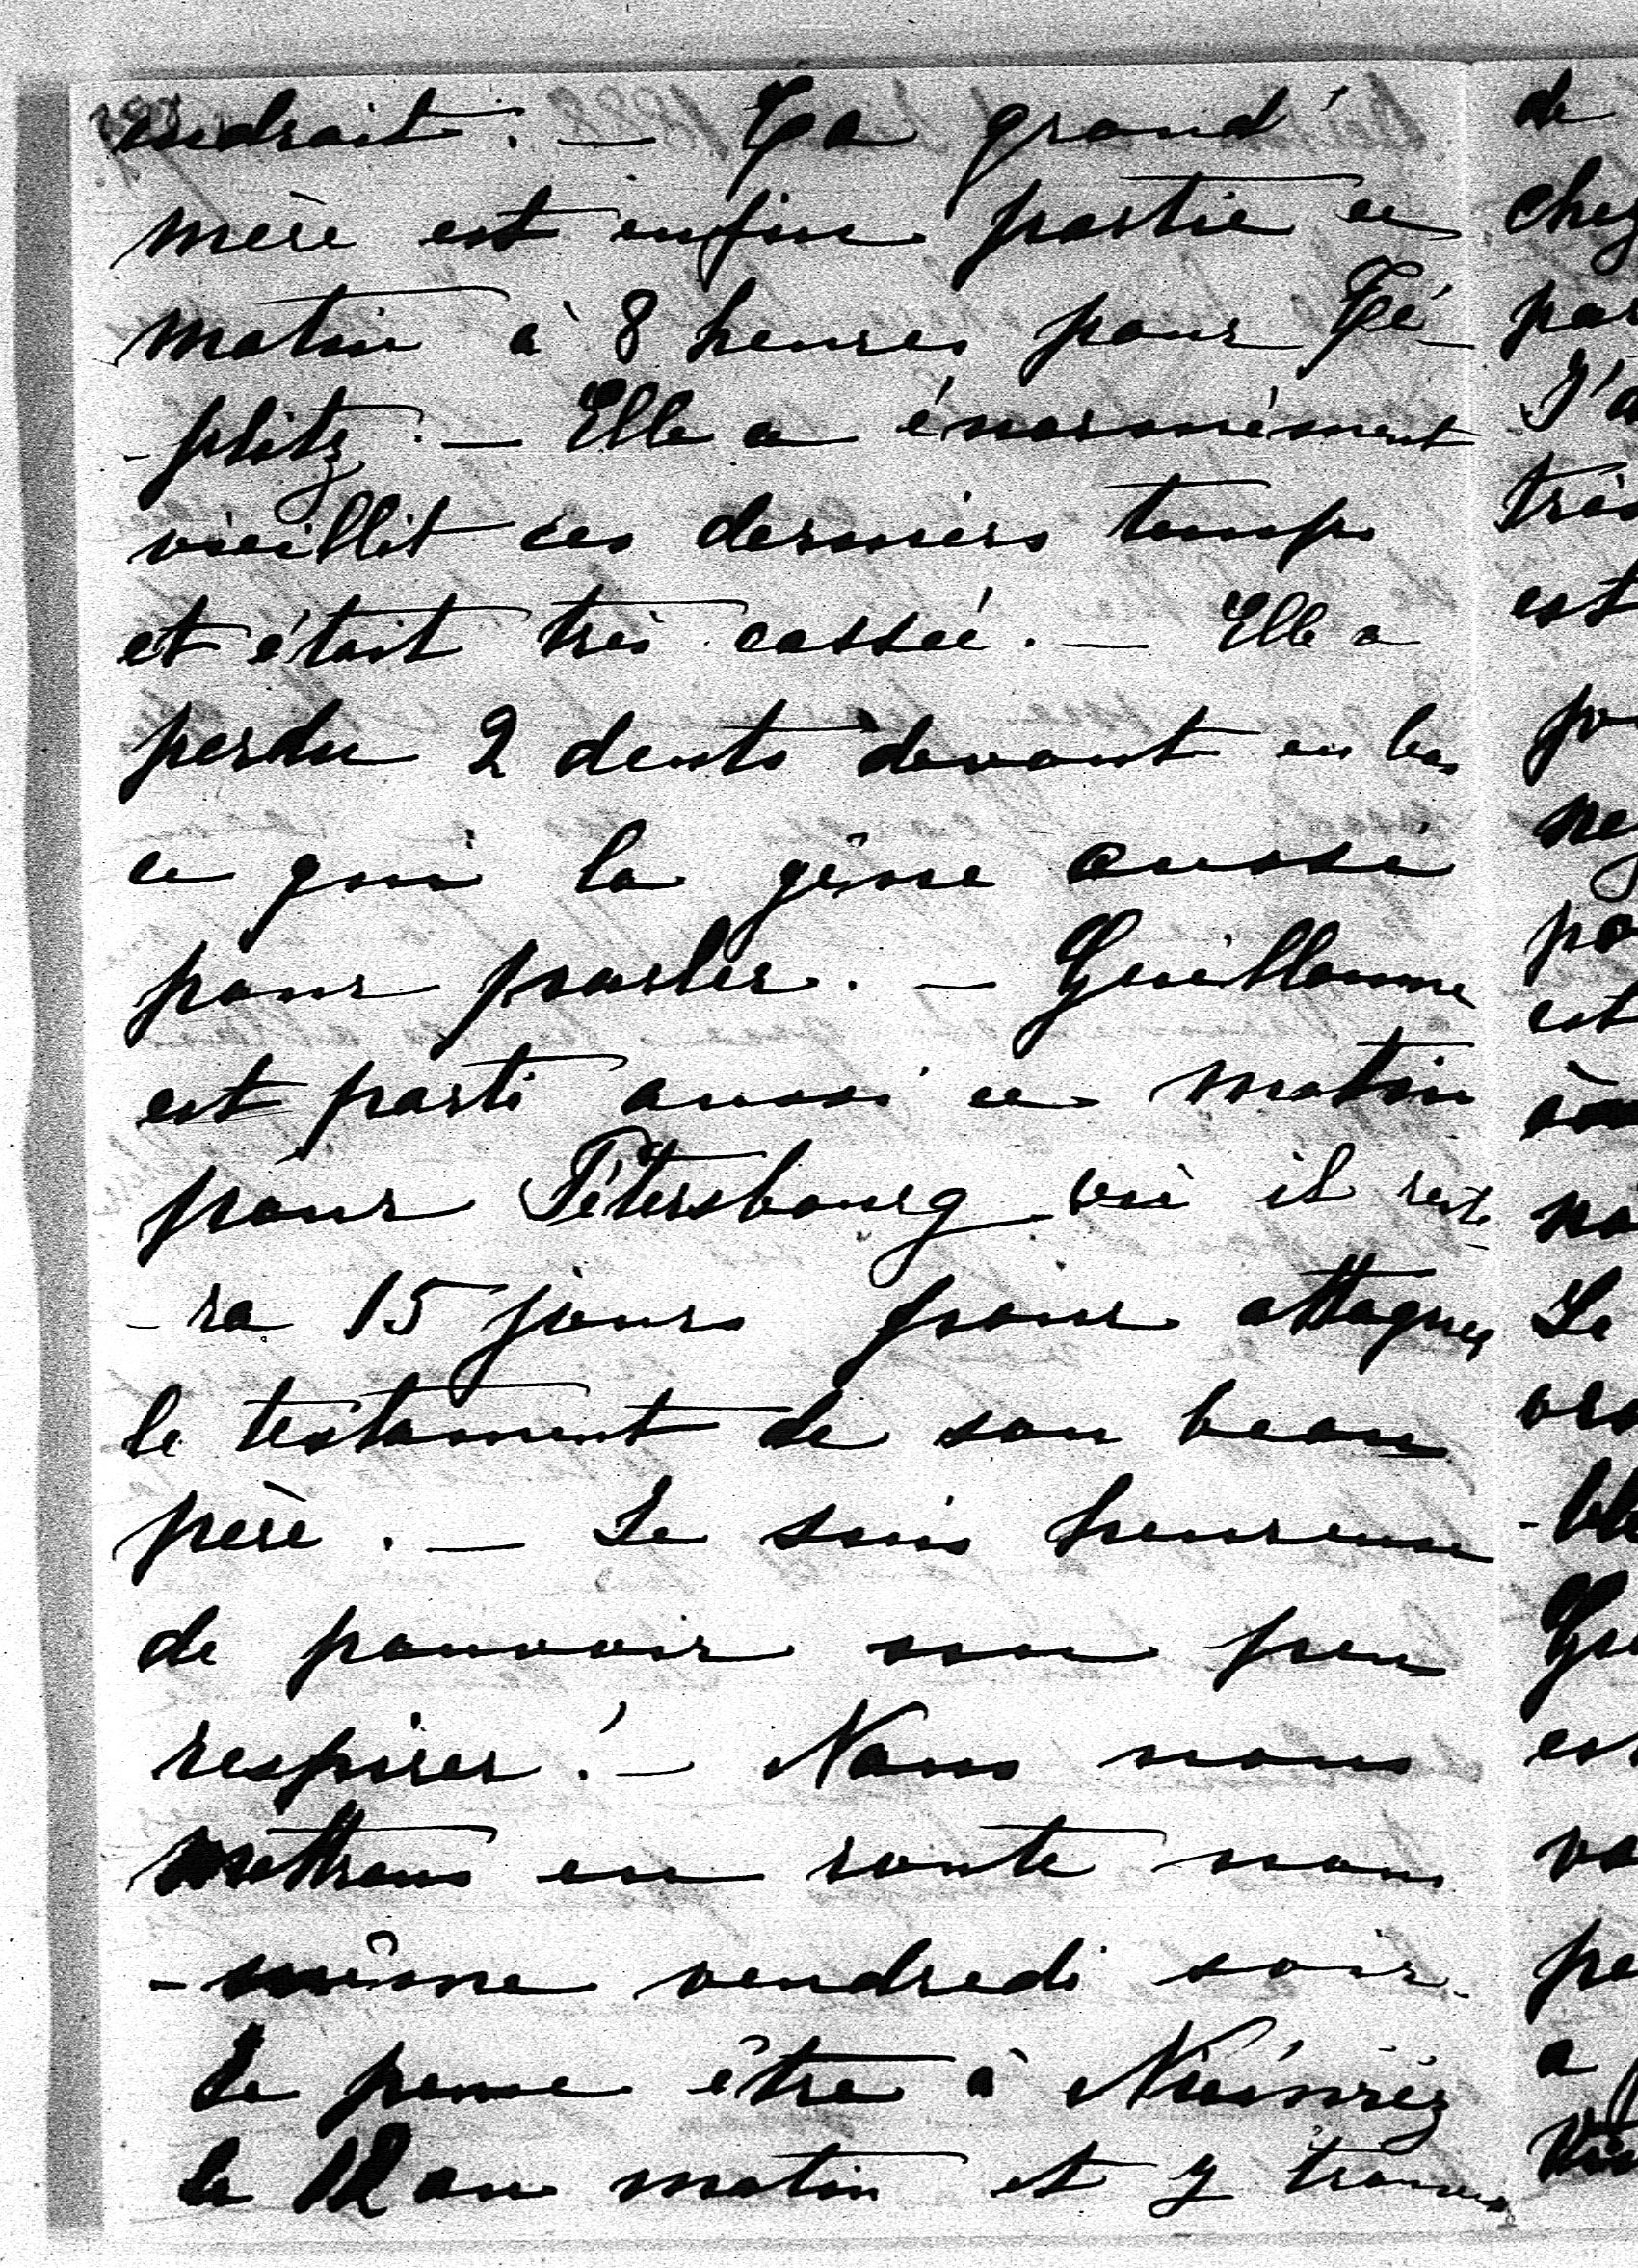 endroit. — Ta grand'
mère est enfin partie ce
matin à 8 heures pour Té-
-plitz. — Elle a énormément
vieillit ces derniers temps
et était très cassée. — Elle a
perdu 2 dents devant en bas
ce qui la gêne aussi
pour parler. — Guillaume
est parti aussi ce matin
pour Pétersbourg où il reste-
-ra 15 jours pour attaquer
le testament de son beau
père. — Je suis heureuse
de pouvoir un peu
respirer! — Nous nous
mettrons en route nous
-même vendredi soir.
Je pense être à
le 12 au matin et y trouver
de
chez
par
J'a
très
est